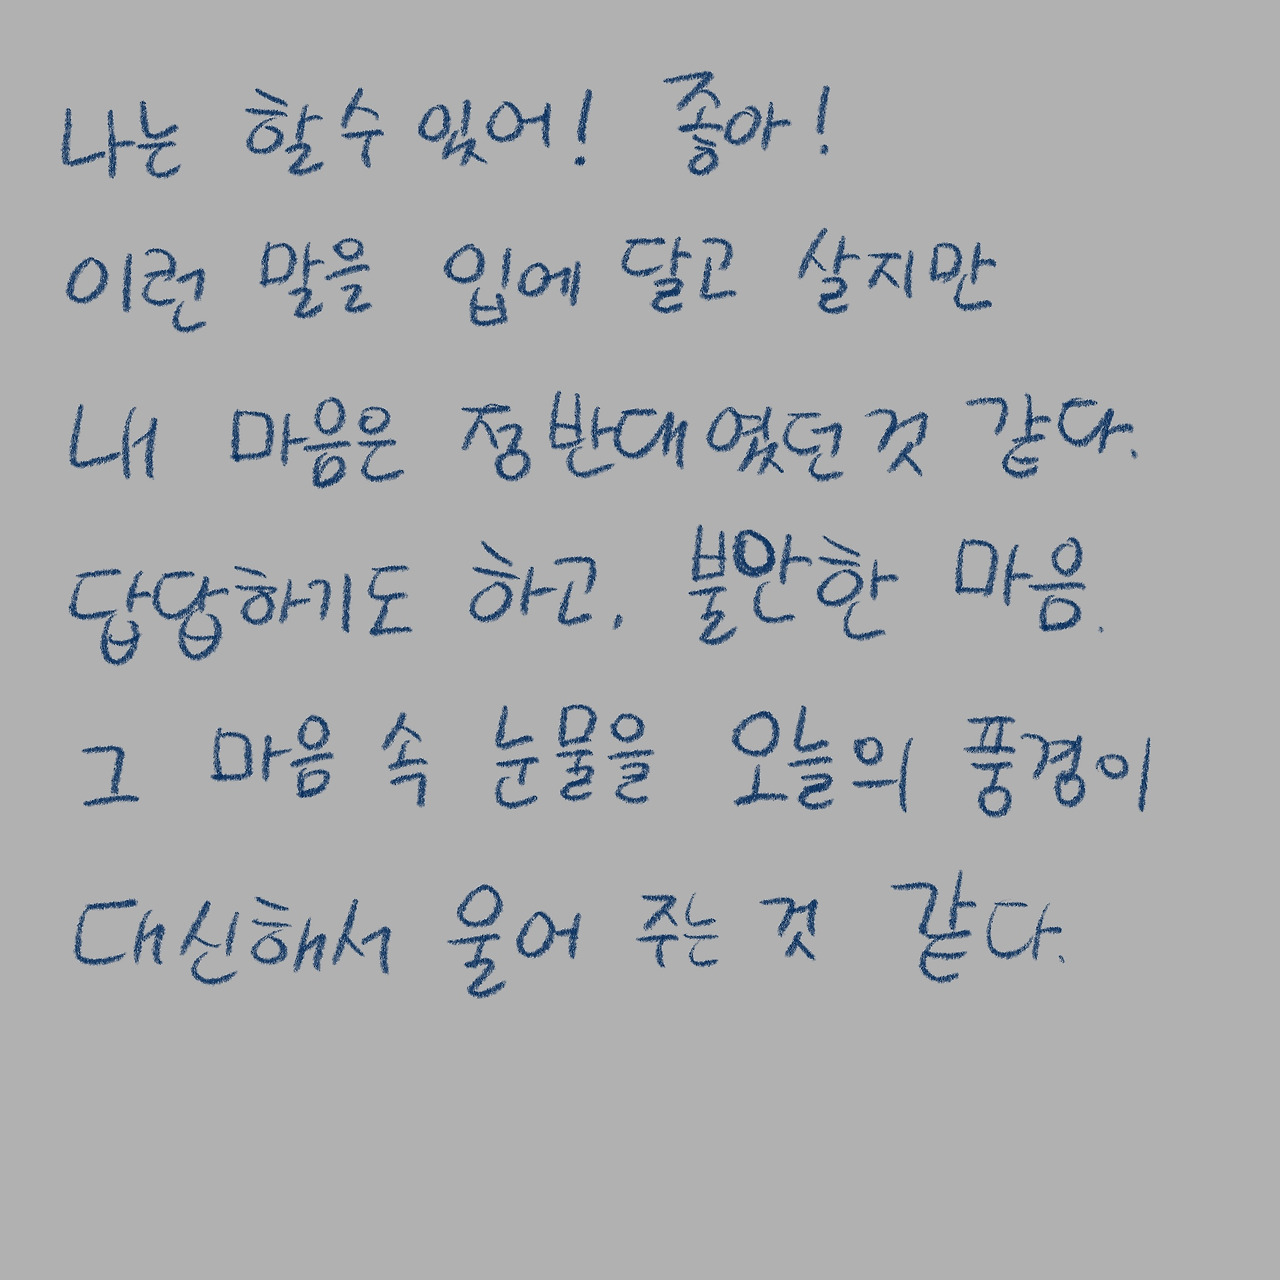 나는 할수 있어! 좋아!
이런 말을 입에 달고 살지만
내 마음은 정반대였던것 같다.
답답하기도 하고, 불안한 마음.
그 마음 속 눈물을 오늘의 풍경이
대신해서 울어 주는 것 같다.